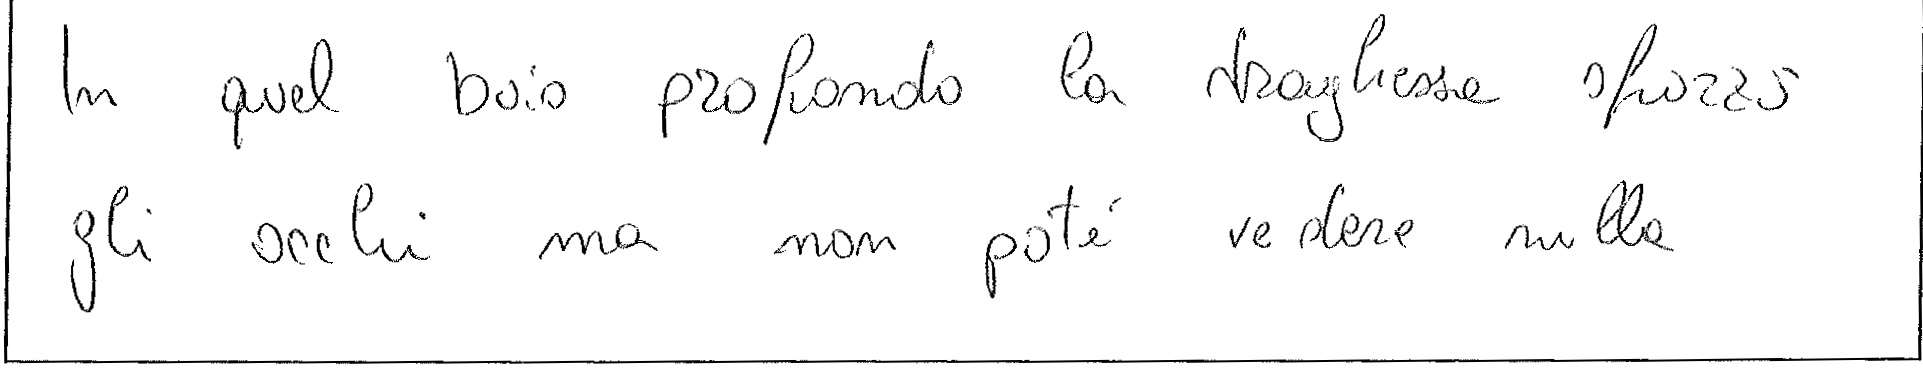 In quel buio profondo la draghessa sfuzzò
gli occhi ma non poté vedere nulla